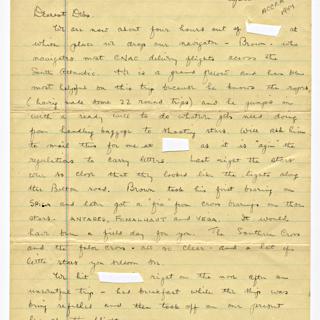 ACCRA
1941
Dearest Debs.
We are now about four hours out of
at which place we drop our navigator - Brown - who
navigates most CNAC delivery flights across the
South Atlantic. He is a grand person and has been
most helpful on this trip because he knows the ropes
(having made some 22 round trips) and he jumps in
with a ready will to do whatever jobs need doing
from handling baggage to shooting stars. Will ask him
to mail this for me at as it is 'agin' the
regulations to carry letters. Last night the stars
were so close that they looked like the lights along
the road. Brown took his first bearing on
SPICA and later got a 'fix' from cross bearings on three
stars - ANTARES, FOMALHAUT and VEGA. It would
have been a field day for you. The Southern Cross
and the polar cross - all so clear - and a lot of
little stars you seldom see.
We hit right on the nose after an
uneventful trip - had breakfast while the ship was
being refueled and then took off on our present